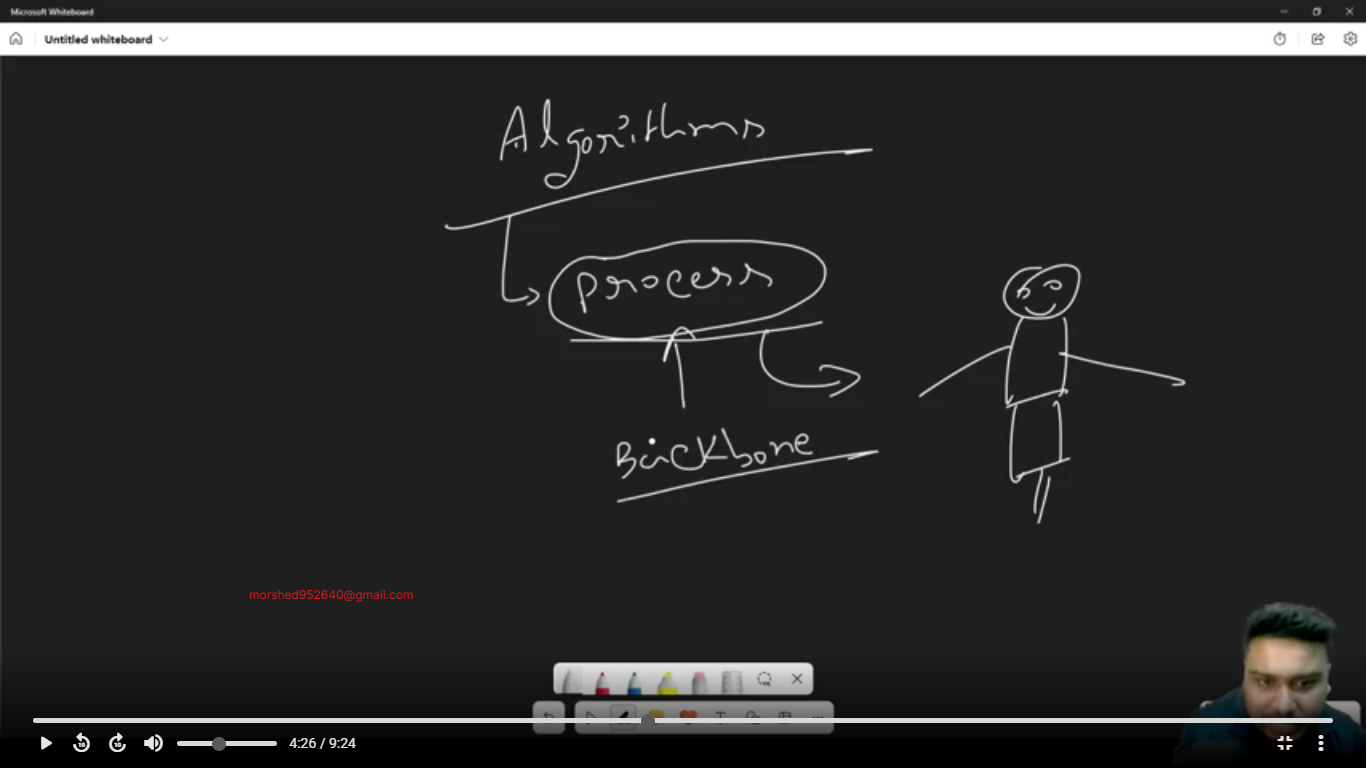 Microsoft Whiteboard
Untitled whiteboard
Algorithms
process
Backbone
morshed952640@gmail.com
10 10 4:26 / 9:24